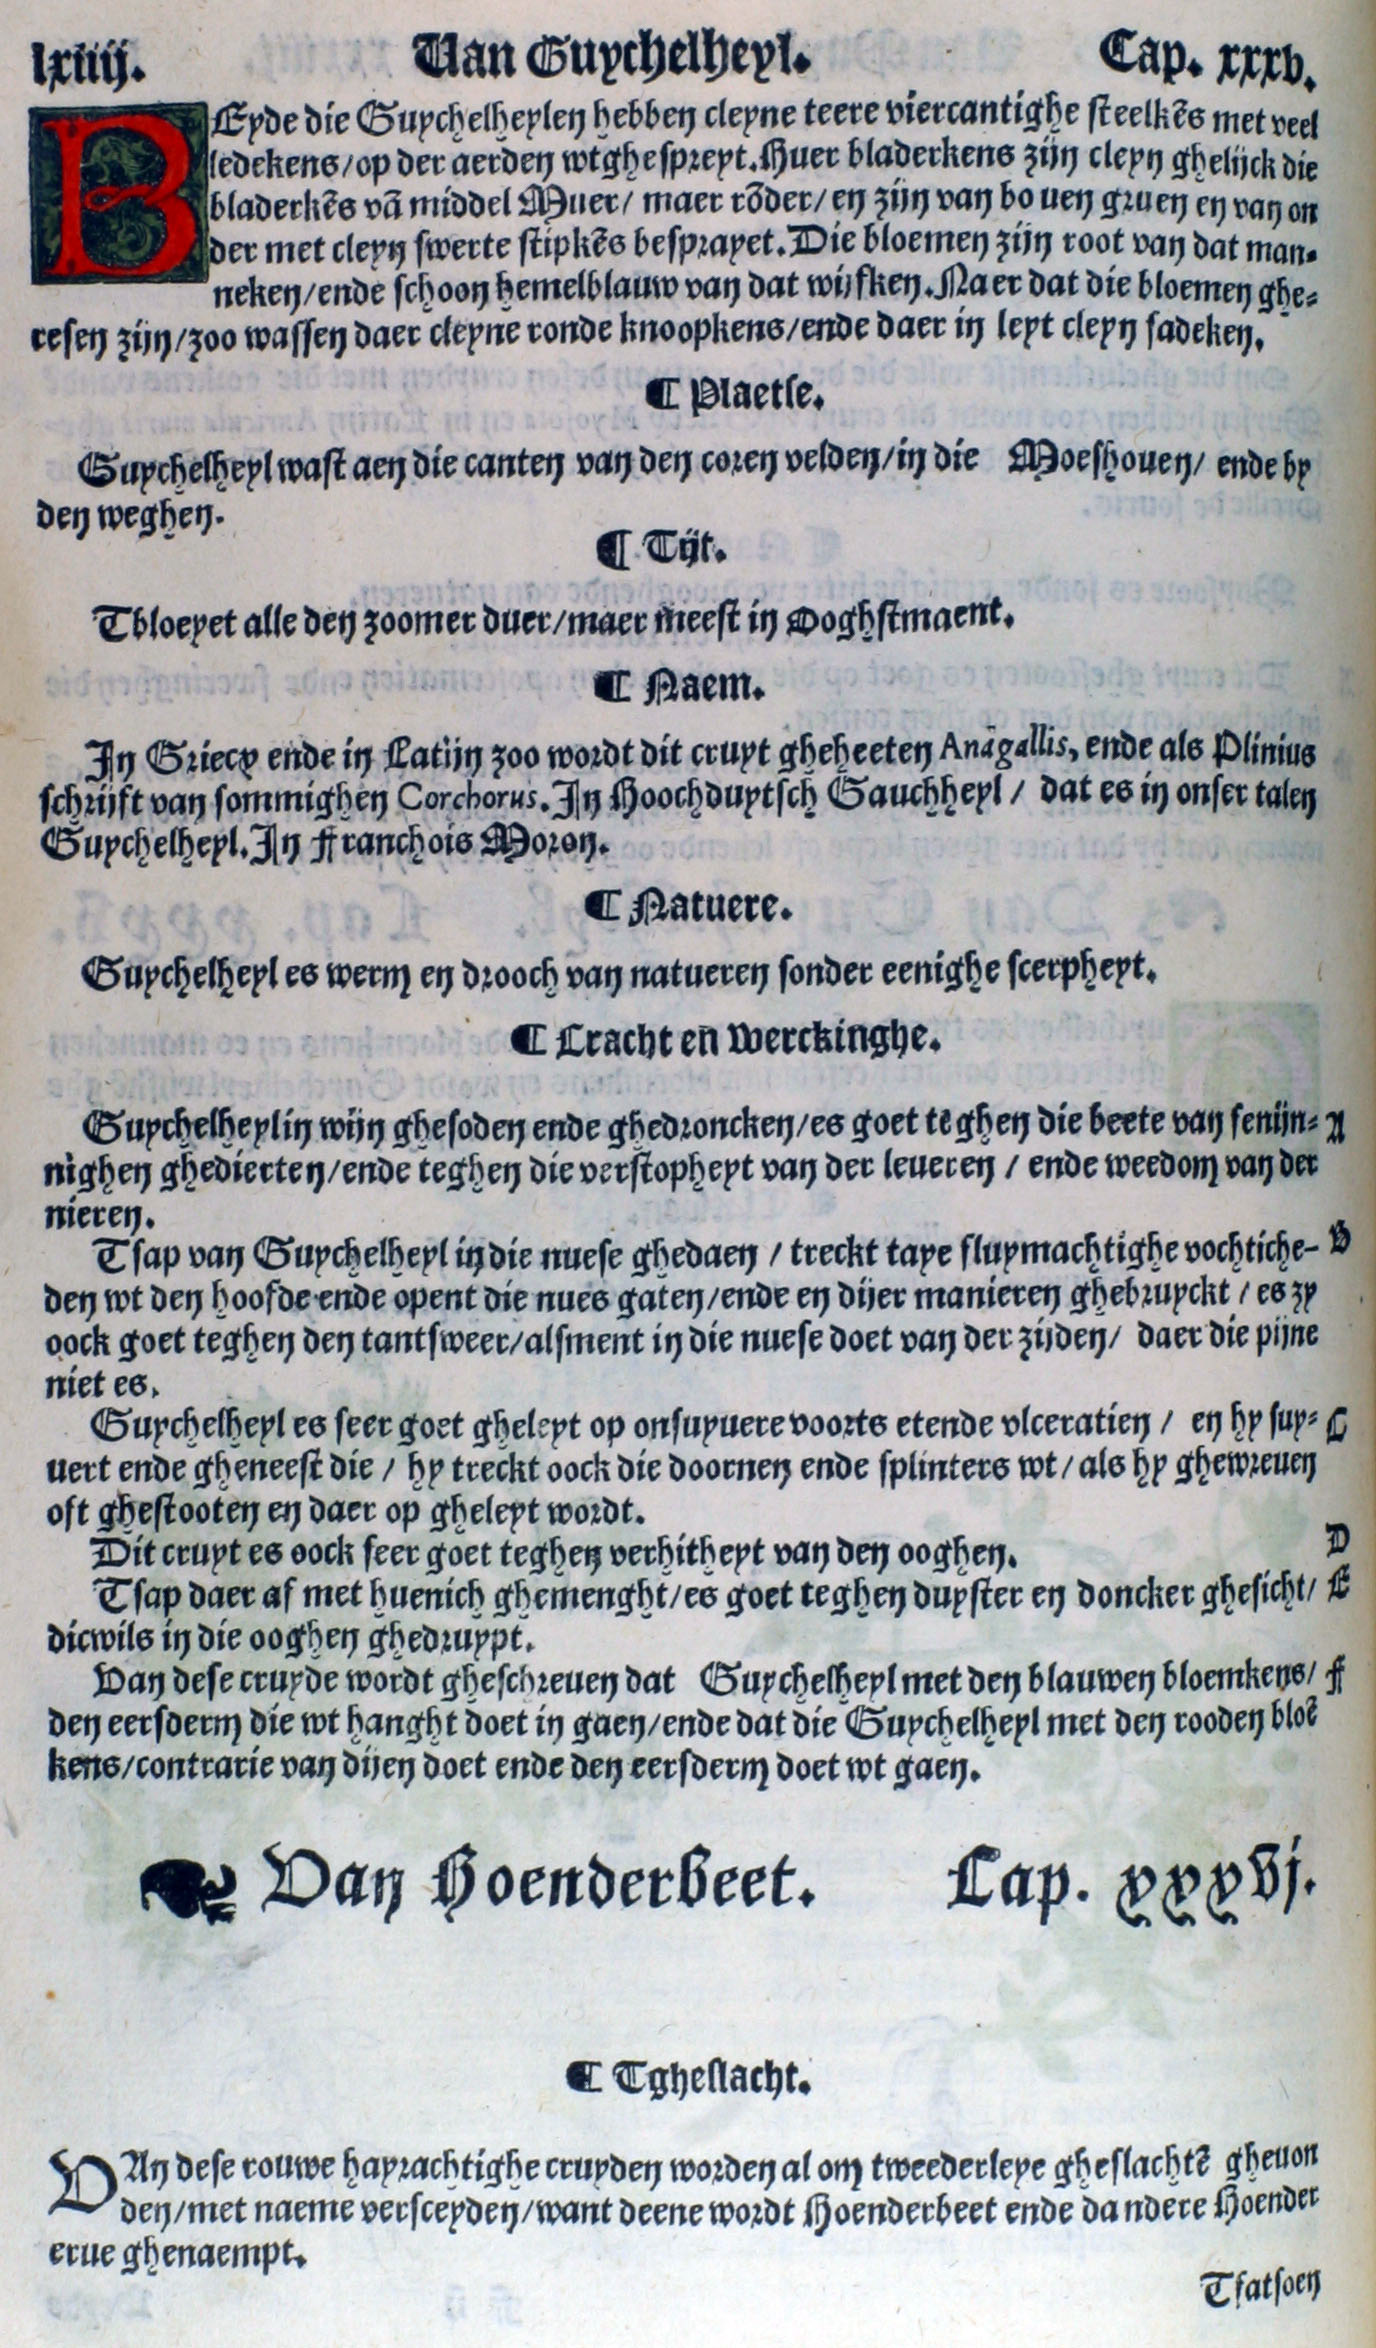 lxiiij. Van Guychelheyl. Cap. xxxv.
BEyde die Guychelheylen hebben cleyne teere viercantighe steelkēs met veel
ledekens/op der aerden wtghespreyt. Huer bladerkens zijn cleyn ghelijck die
bladerkēs vā middel Muer/ maer rōder/ en zijn van bo uen gruen en van on
der met cleyn swerte stipkēs besprayet. Die bloemen zijn root van dat man-
neken/ende schoon hemelblauw van dat wijfken. Naer dat die bloemen ghe-
resen zijn/zoo wassen daer cleyne ronde knoopkens/ende daer in leyt cleyn sadeken.
¶ Plaetse.
Guychelheyl wast aen die canten van den coren velden/in die Moeshouen/ ende by
den weghen.
¶ Tijt.
Tbloeyet alle den zoomer duer/maer meest in Ooghstmaent.
¶ Naem.
In Griecx ende in Latijn zoo wordt dit cruyt gheheeten Anagallis, ende als Plinius
schrijft van sommighen Corchorus. In Hoochduytsch Gauchheyl / dat es in onser talen
Guychelheyl. In Franchois Moron.
¶ Natuere.
Guychelheyl es werm en drooch van natueren sonder eenighe scerpheyt.
¶ Cracht en̄ Werckinghe.
Guychelheyl in wijn ghesoden ende ghedroncken/es goet teghen die beete van fenijn- A
nighen ghedierten/ende teghen die verstopheyt van der leueren / ende weedom van der
nieren.
Tsap van Guychelheyl in die nuese ghedaen / treckt taye sluymachtighe vochtiche- B
den wt den hoofde ende opent die nues gaten/ende en dijer manieren ghebruyckt / es zy
oock goet teghen den tantsweer/alsment in die nuese doet van der zijden/ daer die pijne
niet es.
Guychelheyl es seer goet gheleyt op onsuyuere voorts etende vlceratien / en hy suy- C
uert ende gheneest die / hy treckt oock die doornen ende splinters wt/als hy ghewreuen
oft ghestooten en daer op gheleyt wordt.
Dit cruyt es oock seer goet teghen verhitheyt van den ooghen. D
Tsap daer af met huenich ghemenght/es goet teghen duyster en doncker ghesicht/ E
dicwils in die ooghen ghedruypt.
Van dese cruyde wordt gheschreuen dat Guychelheyl met den blauwen bloemkens/ F
den eersderm die wt hanght doet in gaen/ende dat die Guychelheyl met den rooden bloē
kens/contrarie van dijen doet ende den eersderm doet wt gaen.
Van Hoenderbeet. Cap. xxxvj.
¶ Tgheslacht.
VAn dese rouwe hayrachtighe cruyden worden al om tweederleye gheslachtē gheuon
den/met naeme versceyden/want deene wordt Hoenderbeet ende dandere Hoender
erue ghenaempt.
Tfatsoen